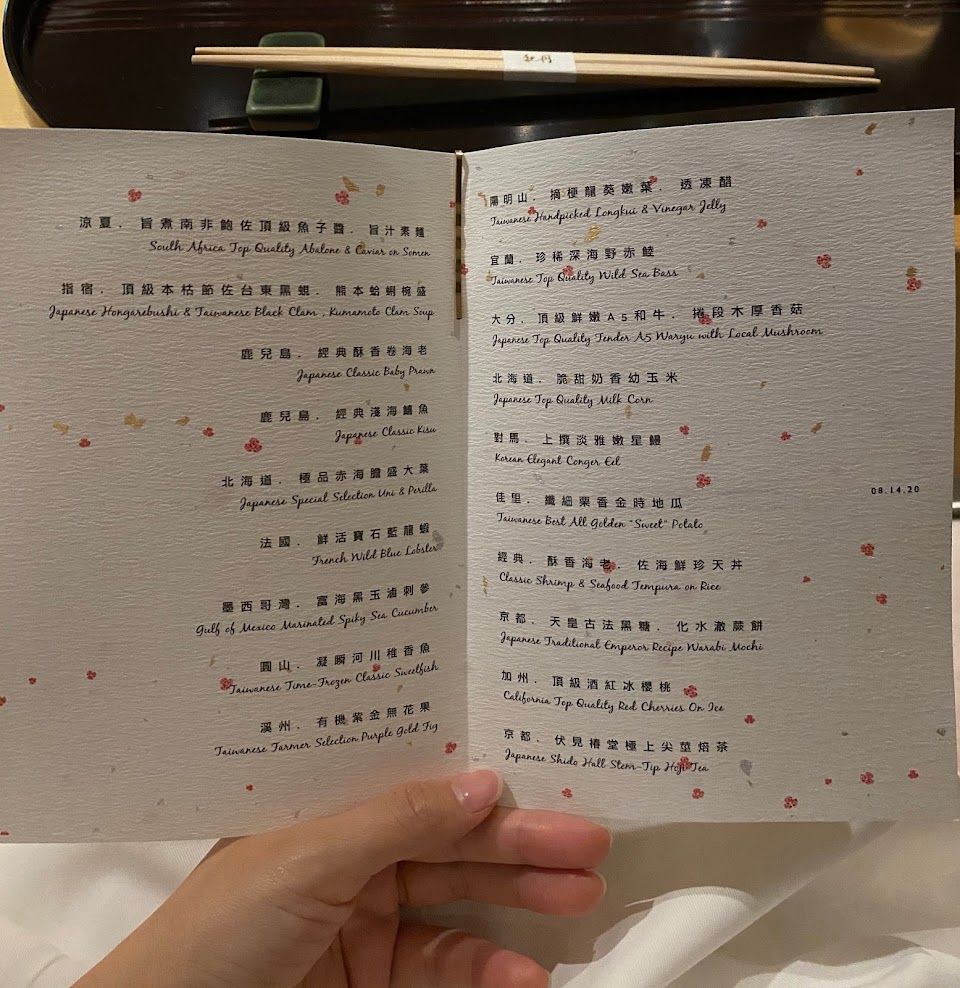 涼夏．旨煮南非鮑佐頂級魚子醬．旨汁素麵
South Africa Top Quality Abalone & Caviar on Somen
指宿．頂級本枯節佐台東黑蜆．熊本蛤蜊椀盛
Japanese Hongarebushi & Taiwanese Black Clam , Kumamoto Clam Soup
鹿兒島．經典酥香卷海老
Japanese Classic Baby Prawn
鹿兒島．經典淺海鱚魚
Japanese Classic Kisu
北海道．極品赤海膽盛大葉
Japanese Special Selection Uni & Perilla
法國．鮮活寶石藍龍蝦
French Wild Blue Lobster
墨西哥灣．富海黑玉滷刺參
Gulf of Mexico Marinated Spiky Sea Cucumber
圓山．凝瞬河川稚香魚
Taiwanese Time-Frozen Classic Sweetfish
溪州．有機紫金無花果
Taiwanese Farmer Selection Purple Gold Fig
陽明山．摘梗龍葵嫩葉．透凍醋
Taiwanese Handpicked Longkui & Vinegar Jelly
宜蘭．珍稀深海野赤鯥
Taiwanese Top Quality Wild Sea Bass
大分．頂級鮮嫩A5和牛．捲段木厚香菇
Japanese Top Quality Tender A5 Waryu with Local Mushroom
北海道．脆甜奶香幼玉米
Japanese Top Quality Milk Corn
對馬．上撰淡雅嫩星鰻
Korean Elegant Conger Eel
佳里．纖細栗香金時地瓜
Taiwanese Best All Golden "Sweet" Potato
經典．酥香海老．佐海鮮珍天丼
Classic Shrimp & Seafood Tempura on Rice
京都．天皇古法黑糖．化水澈蕨餅
Japanese Traditional Emperor Recipe Warabi Mochi
加州．頂級酒紅冰櫻桃
California Top Quality Red Cherries On Ice
京都．伏見椿堂極上尖莖焙茶
Japanese Shido Hall Stem-Tip Hoji Tea
08.14.20